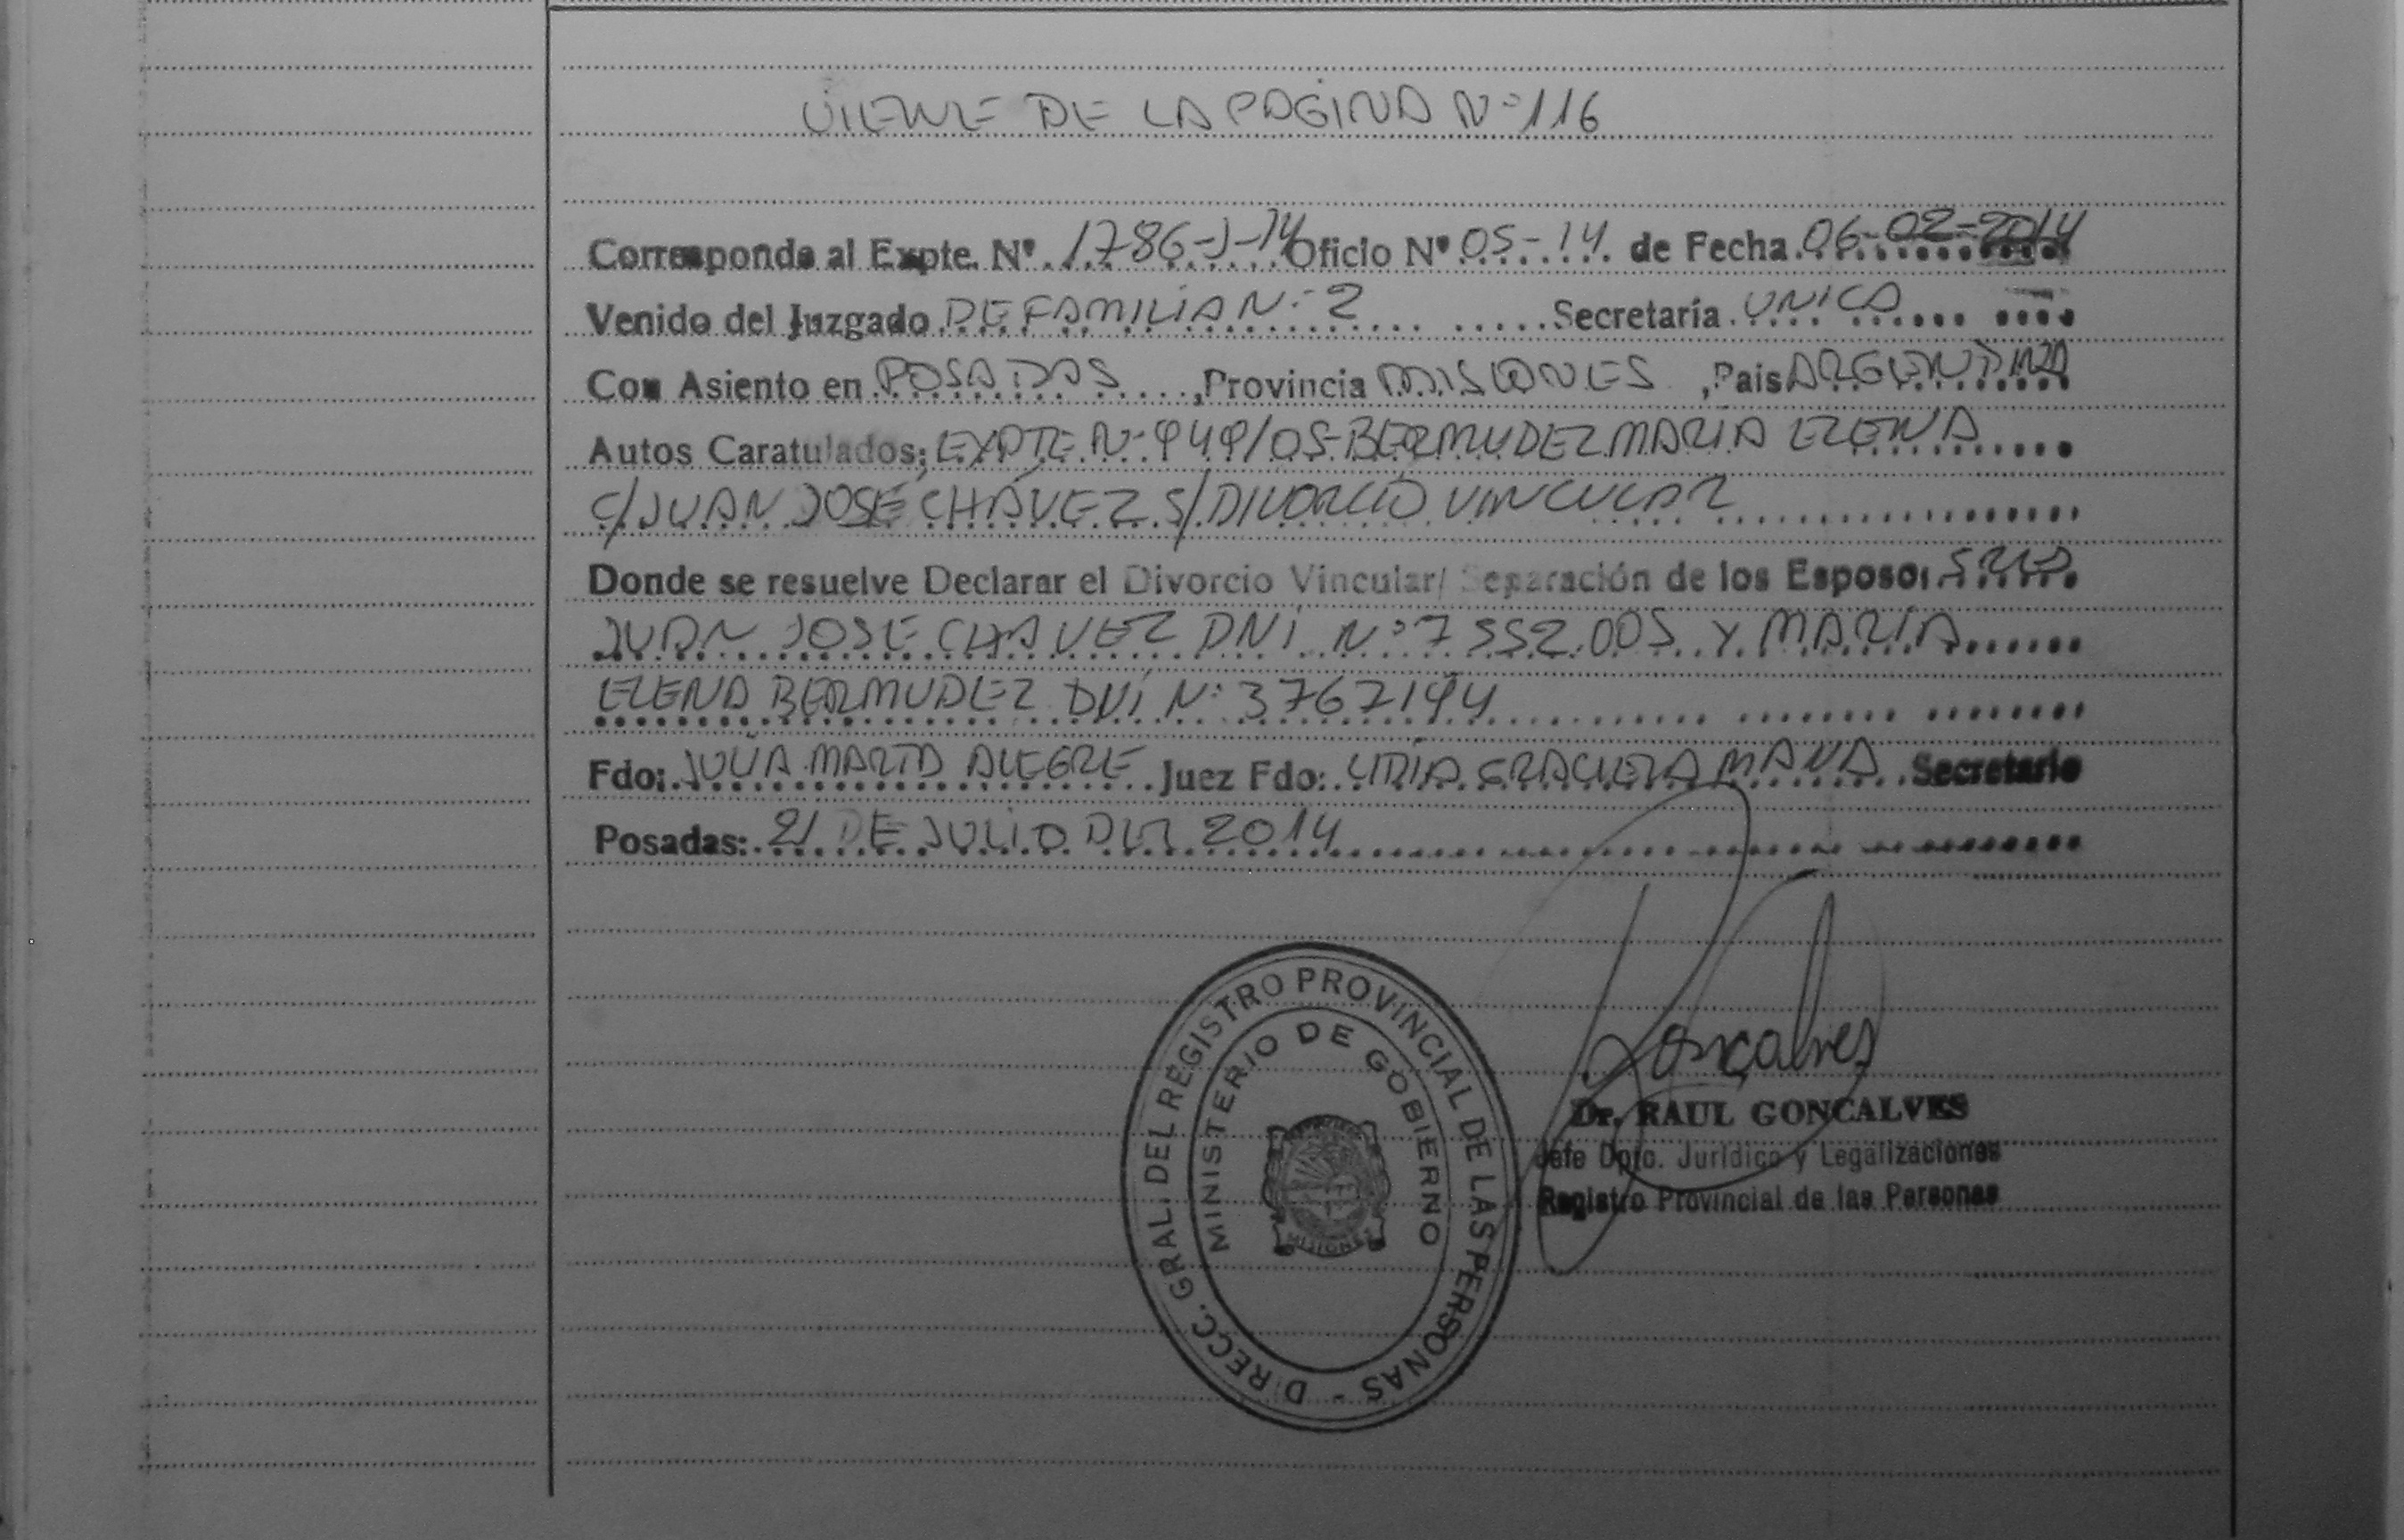 VIENE DE LA PAGINA Nº 116
Corresponde al Expte. Nº 1786-J-14 Oficio Nº 05-14 de Fecha 06-02-2014
Venido del Juzgado DE FAMILIA Nº 2 Secretaría UNICA
Con Asiento en POSADAS, Provincia MISIONES, País ARGENTINA
Autos Caratulados; EXPTE Nº 949/05-BERMUDEZ MARIA ELENA
C/JUAN JOSE CHÁVEZ S/DIVORCIO VINCULAR
Donde se resuelve Declarar el Divorcio Vincular/ Separación de los Esposos
JUAN JOSE CHAVEZ DNI Nº 7552.005 Y MARÍA
ELENA BERMUDEZ DNI Nº 3767194
Fdo: JULIA MARTA ALEGRE Juez Fdo: GRACIELA Secretario
Posadas: 21 DE JULIO DEL 2014
DIRECC. GRAL. DEL REGISTRO PROVINCIAL DE LAS PERSONAS -
MINISTERIO DE GOBIERNO
MISIONES
Goncalves
Dr. RAUL GONCALVES
Jefe Dpto. Jurídico y Legalizaciones
Registro Provincial de las Personas